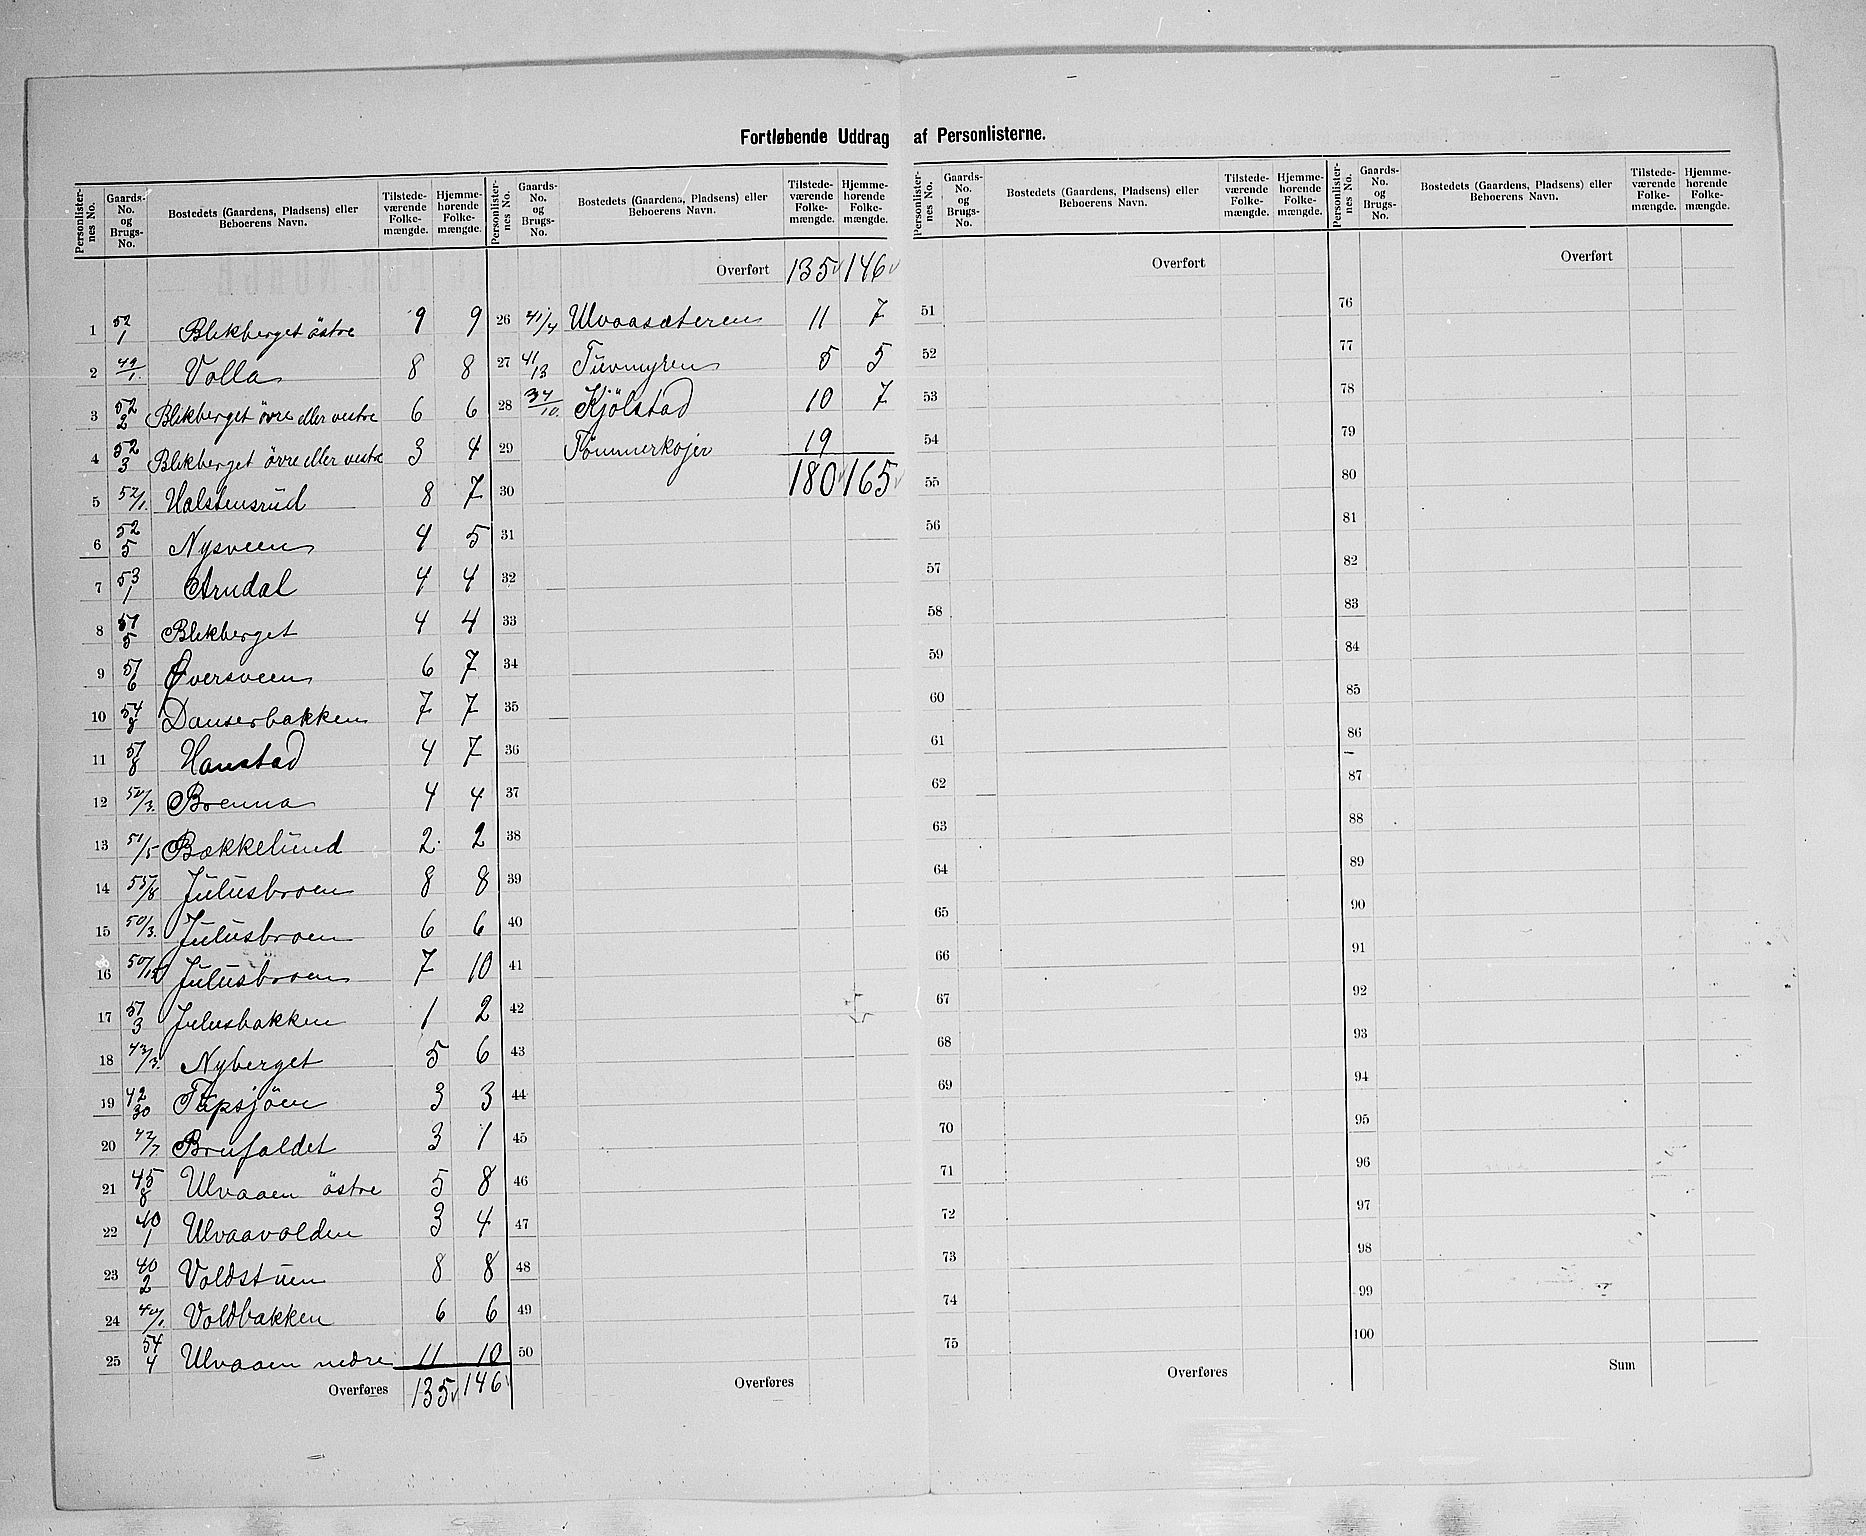 Fortløbende Uddrag af Personlisterne.
Personlisternes No. Gaards-No. og Brugs-No. Bostedets (Gaardens, Pladsens) eller Beboerens Navn. Tilstedeværende Folkemængde. Hjemmehørende Folkemængde.
1 52/1 Blikberget östre 9 9
2 49/1. Volla 8 8
3 52/2 Blikberget övre eller vestre 6 6
4 52/3 Blikberget övre eller vestre 3 4
5 52/1. Halstensrud 8 7
6 52/5 Nysveen 4 5
7 53/1 Arndal 4 4
8 51/5 Blikberget 4 4
9 51/6 Øversveen 6 7
10 54/8 Danserbakken 7 7
11 51/8 Hanstad 4 7
12 50/3. Brenna 4 4
13 51/5 Bækkelund 2 2
14 55/8 Julusbroen 8 8
15 50/3. Julusbroen 6 6
16 50/15 Julusbroen 7 10
17 51/3 Julusbakken 1 2
18 43/3. Nyberget 5 6
19 42/30 Tapsjöen 3 3
20 42/7 Brufaldet 3 1
21 45/8 Ulvaaen östre 5 8
22 40/1 Ulvaavolden 3 4
23 40/2 Voldstuen 8 8
24 40/1. Voldbakken 6 6
25 54/4 Ulvaaen nedre 11 10
Overføres 135 146
Personlisternes No. Gaards-No. og Brugs-No. Bostedets (Gaardens, Pladsens) eller Beboerens Navn. Tilstedeværende Folkemængde. Hjemmehørende Folkemængde.
Overført 135 146
26 41/4 Ulvaasæteren 11 7
27 41/13 Tuvmyren 5 5
28 34/10. Kjölstad 10 7
29 Tömmerkojer 19
30 180 165
31
32
33
34
35
36
37
38
39
40
41
42
43
44
45
46
47
48
49
50
Overføres
Personlisternes No. Gaards-No. og Brugs-No. Bostedets (Gaardens, Pladsens) eller Beboerens Navn. Tilstedeværende Folkemængde. Hjemmehørende Folkemængde.
Overført
51
52
53
54
55
56
57
58
59
60
61
62
63
64
65
66
67
68
69
70
71
72
73
74
75
Overføres
Personlisternes No. Gaards-No. og Brugs-No. Bostedets (Gaardens, Pladsens) eller Beboerens Navn. Tilstedeværende Folkemængde. Hjemmehørende Folkemængde.
Overført
76
77
78
79
80
81
82
83
84
85
86
87
88
89
90
91
92
93
94
95
96
97
98
99
100
Sum